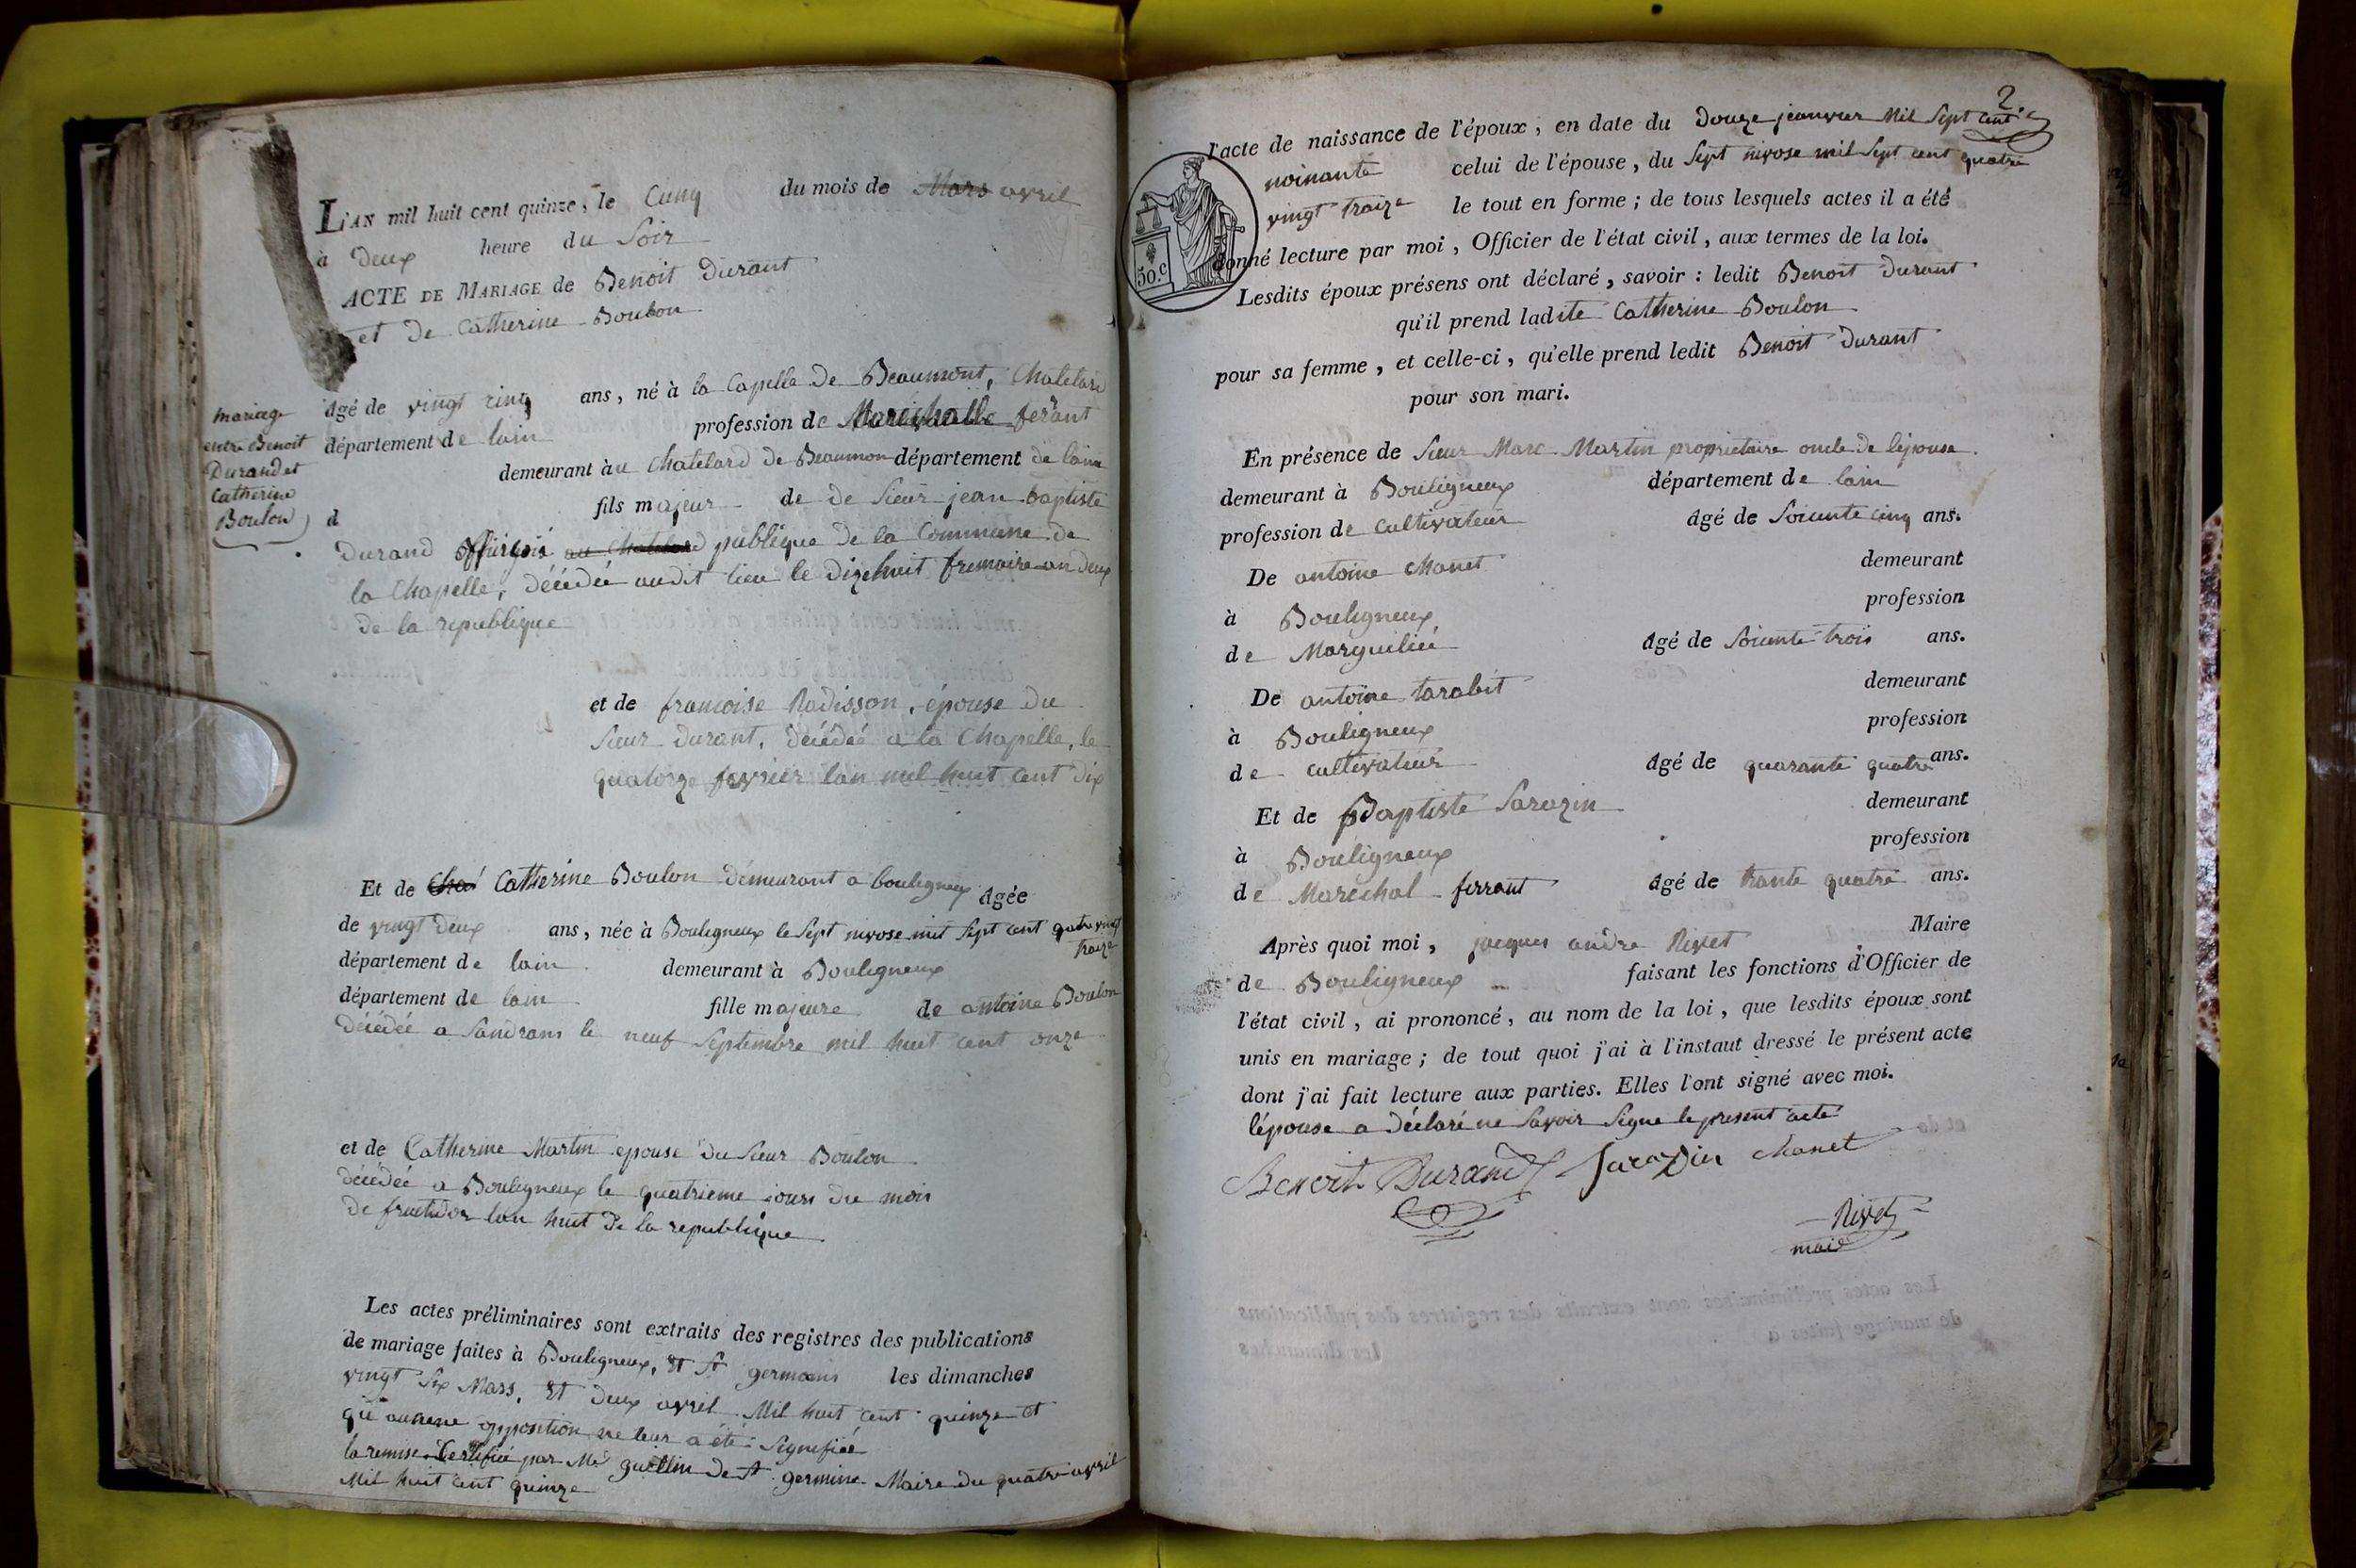 L'AN mil huit cent quinze, le Cinq du mois de Mars avril
à Deux heure du Soir
ACTE DE MARIAGE de Benoit Durant
et de Catherine Boulon
mariage
entre Benoit
Durand et
Catherine
Boulon
Agé de vingt cinq ans, né à la Capelle de Beaumont, Chatelard
département de lain profession de Marechalle ferant
demeurant au Chatelard de Beaumon département de lain
d fils majeur de de Sieur jean baptiste
Durand au Chatelard publique de la Commune de
la Chapelle, décédée audit lieu le dizehuit fremaire an deux
de la republique
et de francoise Radisson, épouse du
Sieur Durant, décédée a la Chapelle, le
quatorze fevrier lan mil huit cent dix
Et de Catherine Boulon demeurant a bouligneux Agée
de vingt deux ans, née à Bouligneux le Sept nivose mil Sept cent quatre vingt
traize
département de lain demeurant à Bouligneux
département de lain fille majeure de antoine Boulon
décédée a Sandrans le neuf Septembre mil huit cent onze
et de Catherine Martin epouse du Sieur Boulon
décédée a Bouligneux le quatrieme jours du mois
de fructidor lan huit de la republique
Les actes préliminaires sont extraits des registres des publications
de mariage faites à Bouligneux, et St germain les dimanches
vingt Six Mars, et deux avril Mil huit cent quinze et
qu'aucune opposition ne leur a été Signifiée
la remise Certifiée par Me guillin de St germine Maire du quatre avril
Mil huit cent quinze
2.
l'acte de naissance de l'époux, en date du Douze jeanvier Mil Sept cent
noinante celui de l'épouse, du Sept nivose mil Sept cent quatre
vingt traize le tout en forme; de tous lesquels actes il a été
donné lecture par moi, Officier de l'état civil, aux termes de la loi.
50.c
Lesdits époux présens ont déclaré, savoir: ledit Benoit Durant
qu'il prend ladite Catherine Boulon
pour sa femme, et celle-ci, qu'elle prend ledit Benoit Durant
pour son mari.
En présence de Sieur Marc Martin proprietaire oncle de lépouse
demeurant à Bouligneux département de lain
profession de Cultivateur Agé de Soicente cinq ans.
De antoine Chanet demeurant
à Bouligneux profession
de Marguilié Agé de Soicente trois ans.
De antoine tarabit demeurant
à Bouligneux profession
de cultivateur Agé de quarante quatre ans.
Et de Baptiste Sarazin demeurant
à Bouligneux profession
de Maréchal ferrant Agé de trante quatre ans.
Après quoi moi, jacques andre Rivet Maire
de Bouligneux faisant les fonctions d'Officier de
l'état civil, ai prononcé, au nom de la loi, que lesdits époux sont
unis en mariage; de tout quoi j'ai à l'instaut dressé le présent acte
dont j'ai fait lecture aux parties. Elles l'ont signé avec moi.
lépouse a déclaré ne Savoir Signe le present acte
Benoit Durand Sarazin Chanet
Rivet
maire